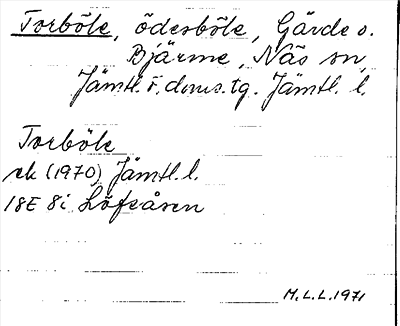 Torböle, ödesböle, Gärde o.
Bjärme, Näs sn,
Jämtl. ö. doms. tg. Jämtl. l.
Torböle
ek (1970) Jämtl. l.
18E 8i Löfsåsen
M.L.L. 1971